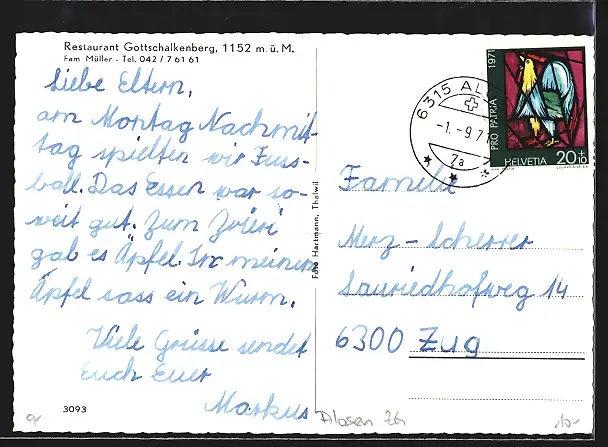 Restaurant Gottschalkenberg, 1152 m. ü. M.
Fam Müller - Tel. 042 / 7 61 61
Liebe Eltern,
am Montag Nachmit-
tag spielten wir Fuss-
ball. Das Essen war so-
weit gut. Zum Zvieri
gab es Äpfel. In meinem
Äpfel sass ein Wurm.
Viele Grüsse sendet
Euch Euer
Markus
3093
Foto Hartmann, Thalwil
6315 AL
-1.-9.71
7a
PRO PATRIA 1971
HELVETIA 20+10
Familie
Merz - Scherrer
Lauriedhofweg 14
6300 Zug
Alosen ZG
10-